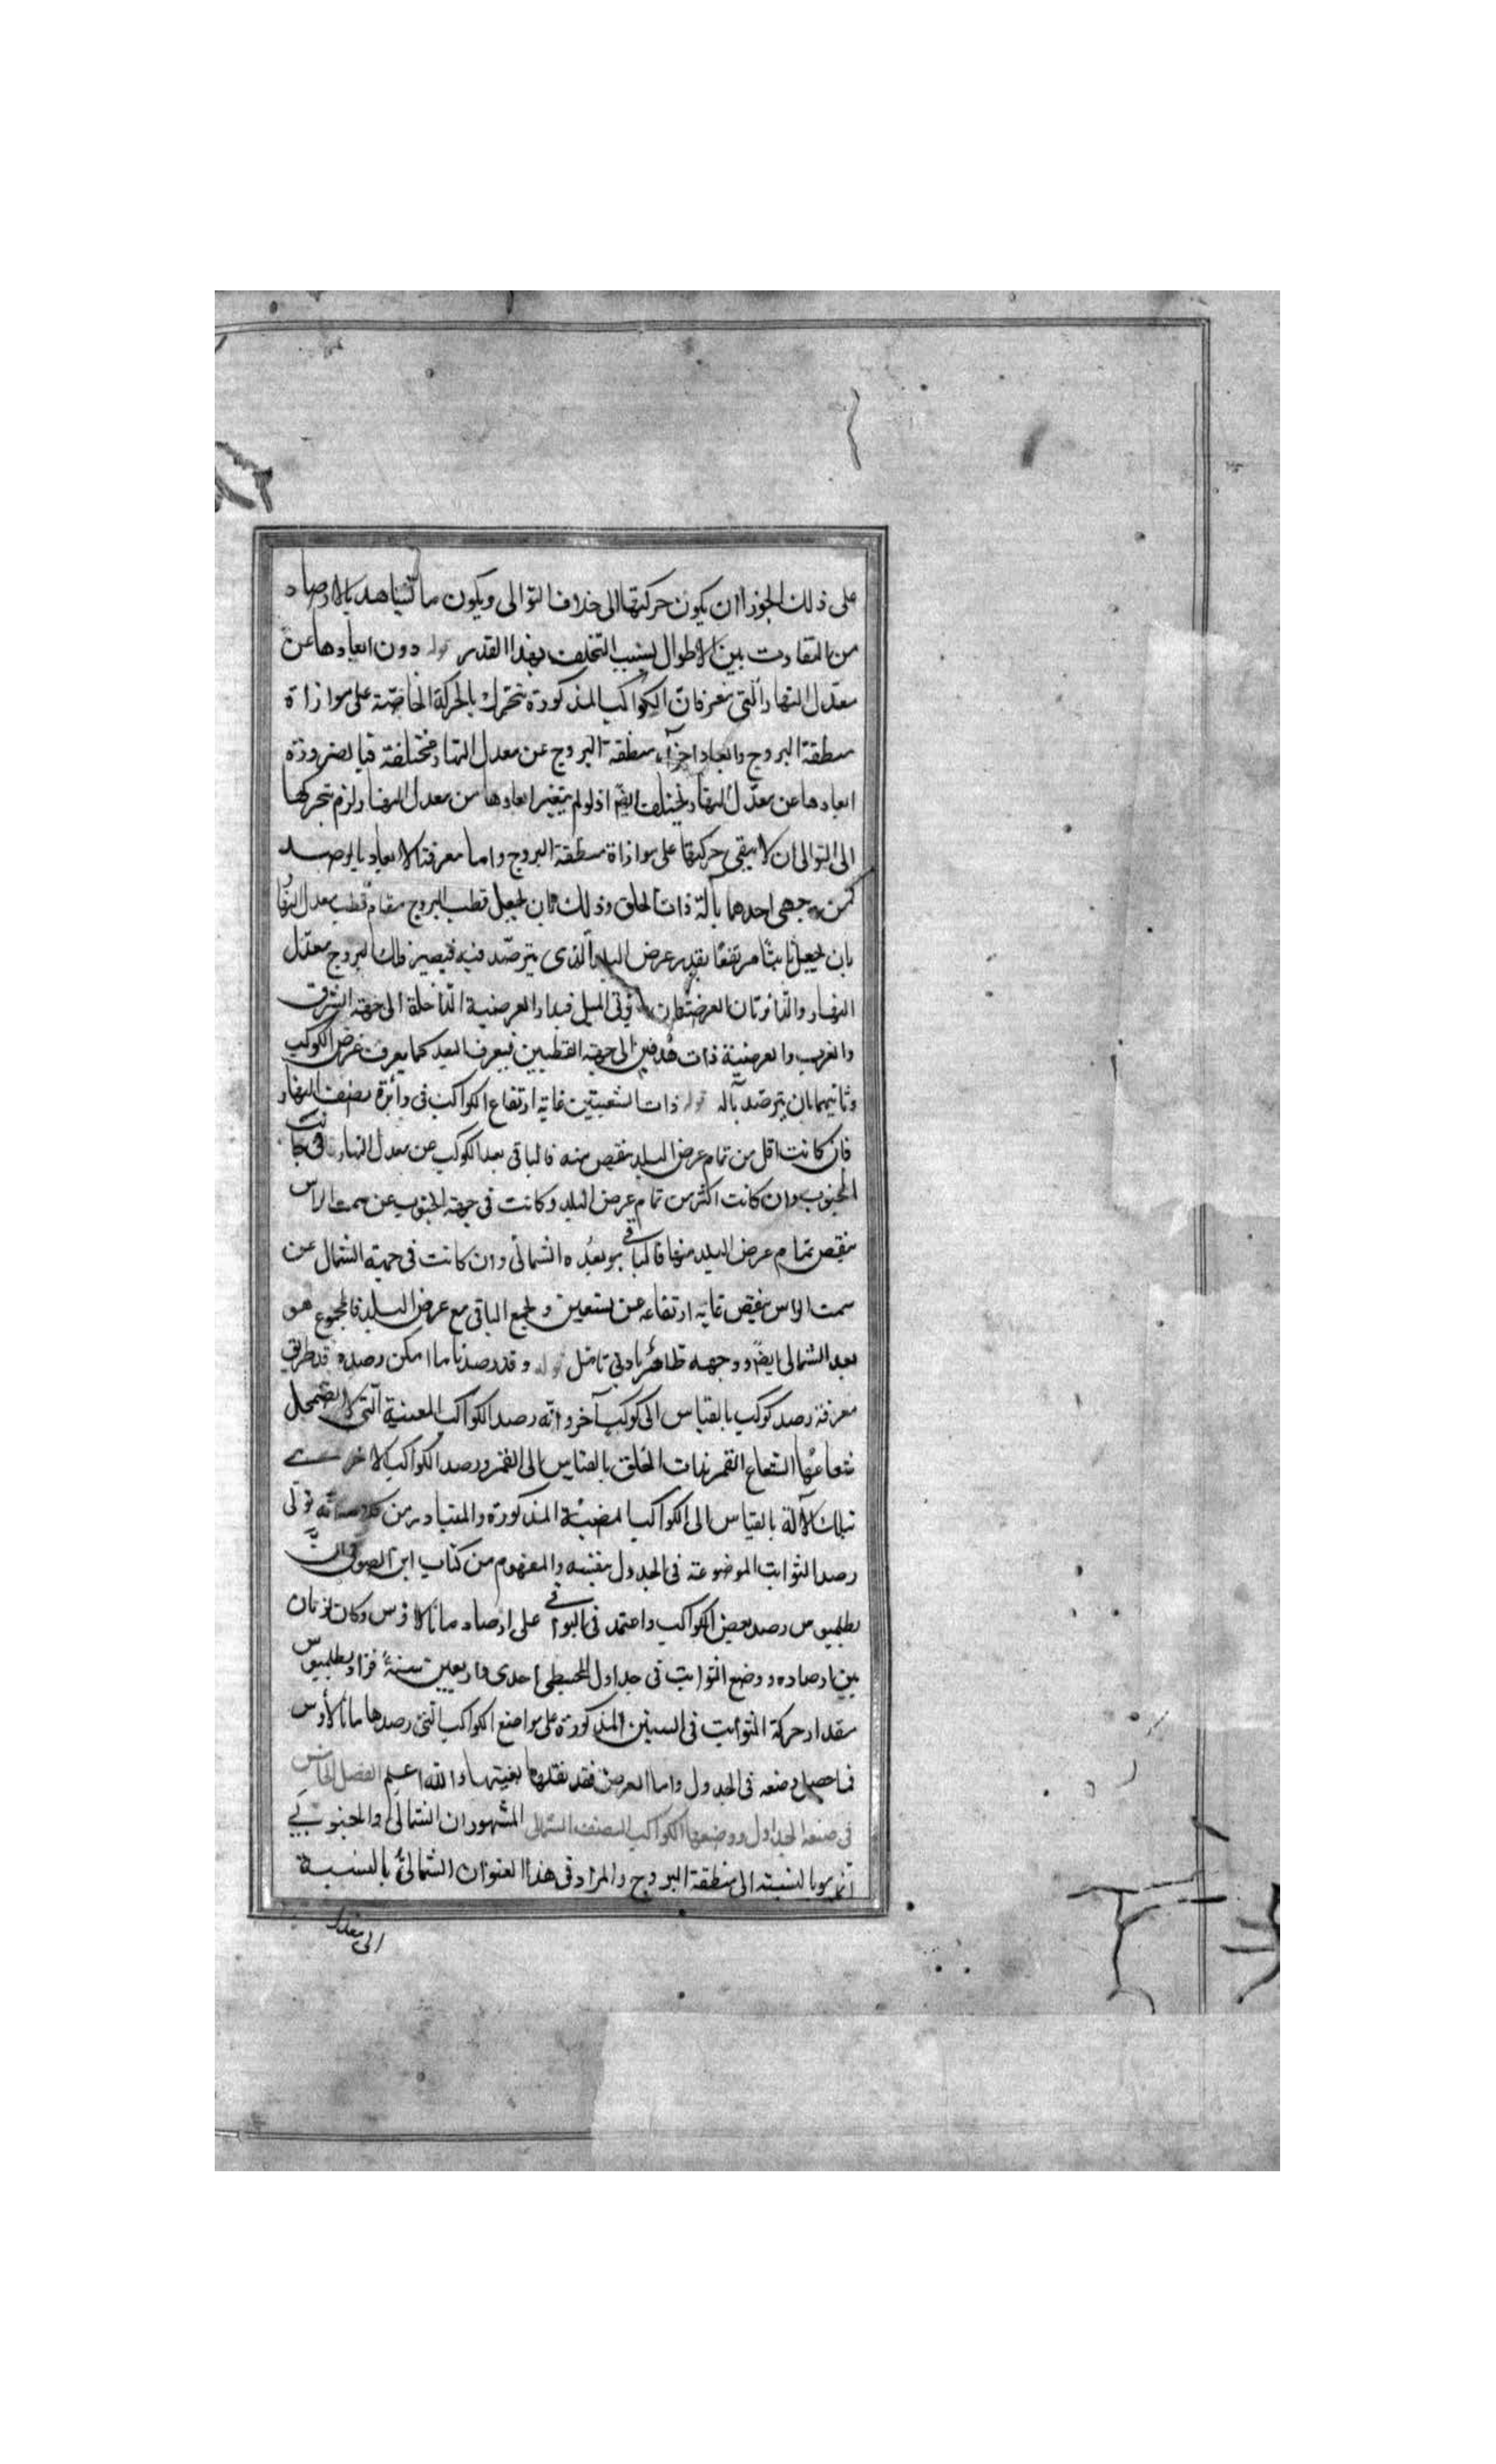 على ذلك لجوزا ان يكون حركتها الى خلاف التوالى ويكون ما تشاهد بالارصاد
من التفاوت بين الاطوال بسبب التخلف بهذا القدر قوله دون ابعادها عن
معدل النهار التى نعرف ان الكواكب المذكورة يتحرك بالحركة الخاصة على موازاة
منطقة البروج وابعاد اجزاء منطقة البروج عن معدل النهار مختلفة فبالضرورة
ابعادها عن معدل النهار يختلف ايضا اذ لو لم يتغير ابعادها من معدل النهار لزم تحركها
الى التوالى ان لا يبقى حركتها على موازاة منطقة البروج واما معرفة الابعاد بالرصد
فمن وجهى احدهما بآلة ذات الحلق وذلك بان يجعل قطب البروج مقام قطب معدل النهار
بان يجعل ثابتا مرتفعا بقدر عرض البلد الذى يترصد فيه فيصير فلك البروج معدل
النهار والدائرتان العرضيتان دائرتى الميل فيدار العرضية الداخلة الى جهة الشرق
والغرب والعرضية ذات هدفين الى جهة القطبين فيعرف البعد كما يعرف عرض الكوكب
وثانيهما بان يترصد بآلة قوله ذات الشعبتين غاية ارتفاع الكواكب فى دائرة نصف النهار
فان كانت اقل من تمام عرض البلد ينقص منه فالباقى بعد الكوكب عن معدل النهار فى جانب
الجنوب وان كانت اكثر من تمام عرض البلد وكانت فى جهة الجنوب عن سمت الراس
ينقص تمام عرض البلد منها فالباقى هو بعده الشمالى وان كانت فى جهة الشمال عن
سمت الراس ينقص غاية ارتفاعه عن تسعين ويجمع الباقى مع عرض البلد فالمجموع هو
بعد الشمالى ايضا ووجهه ظاهر بادنى تامل قوله وقد رصدنا ما امكن رصده قد طريق
معرفة رصد كوكب بالقياس الى كوكب آخر وانه رصد الكواكب المعينة التى لا يضمحل
شعاعها الشعاع القمر بذات الحلق بالقياس الى القمر ورصد الكواكب الاخرى
بتلك الآلة بالقياس الى الكواكب المضيئة المذكورة والمتبادر من تولى
رصد الثوابت الموضوعة فى الجدول بنفسه والمفهوم من كتاب ابن الصوفى ان
بطلميوس رصد بعض الكواكب واعتمد فى البواقى على ارصاد مانالاوس وكان زمان
بين ارصاده ووضع الثوابت فى جداول المجسطى احدى واربعين سنة فزاد بطلميوس
مقدار حركة الثوابت فى السنين المذكورة على مواضع الكواكب التى رصدها مانالاوس
فما حصل وضعه فى الجدول واما العرض فقد نقلها بعينها والله اعلم الفصل الخامس
فى صنعة الجداول ووضعها الكواكب للنصف الشمالى المشهور ان الشمالى والجنوبى
انما هو بالنسبة الى منطقة البروج والمراد فى هذا العنوان الشمالى بالنسبة
الى معدل